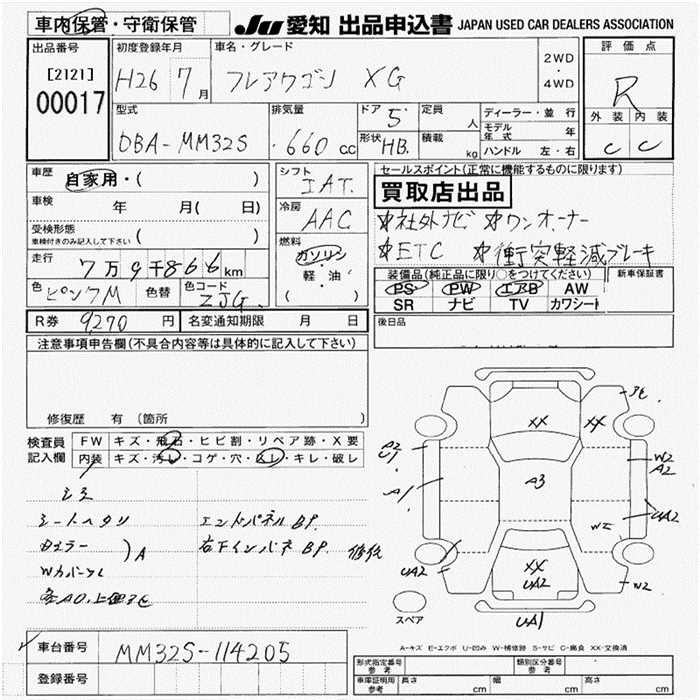 車内保管・守衛保管
JU 愛知 出品申込書 JAPAN USED CAR DEALERS ASSOCIATION
出品番号
[2121]
00017
初度登録年月
H26 7月
車名・グレード
フレアワゴン XG
2WD
・
4WD
評価点
R
外装 内装
C C
型式
DBA-MM32S
排気量
660cc
ドア 5
形状 HB.
定員 人
積載 kg
ディーラー・並行
モデル年式 年
ハンドル 左・右
車歴 自家用・( )
車検 年 月(日)
受検形態
車検付きのみ記入して下さい ( )
走行 7万9千866km
色 ピンクM 色替 色コード ZJG.
シフト
IAT.
冷房
AAC
燃料
ガソリン
軽・油
( )
セールスポイント(正常に機能するものに限り)
買取店出品
社外ナビ ワンオーナー
ETC 衝突軽減ブレーキ
装備品(純正品に限り○をつけてください)
PS PW エアB AW
SR ナビ TV カワシート
新車保証書
R券 9270円 名変通知期限 月 日
後日品
注意事項申告欄(不具合内容等は具体的に記入して下さい)
修復歴 有(箇所 )
検査員
記入欄
FW キズ・飛石・ヒビ割・リペア跡・X要
内装 キズ・汚レ・コゲ・穴・スレ・キレ・破レ
シミ
シートヘタリ エンドパネルBP.
A 右下インパネBP. 修復
Wカバースレ
XX XX
A2
U1
A1
A3
W2
A2
UA2
UA2
XX
UA2
W2
UA1
スペア
A-キズ E-エクボ U-凹み W-補修跡 S-サビ C-腐食 XX-交換済
車台番号 MM32S-114205
登録番号
形式指定番号 参考
類別区分番号 参考
車庫証明用 参考 cm 幅 cm 高 cm